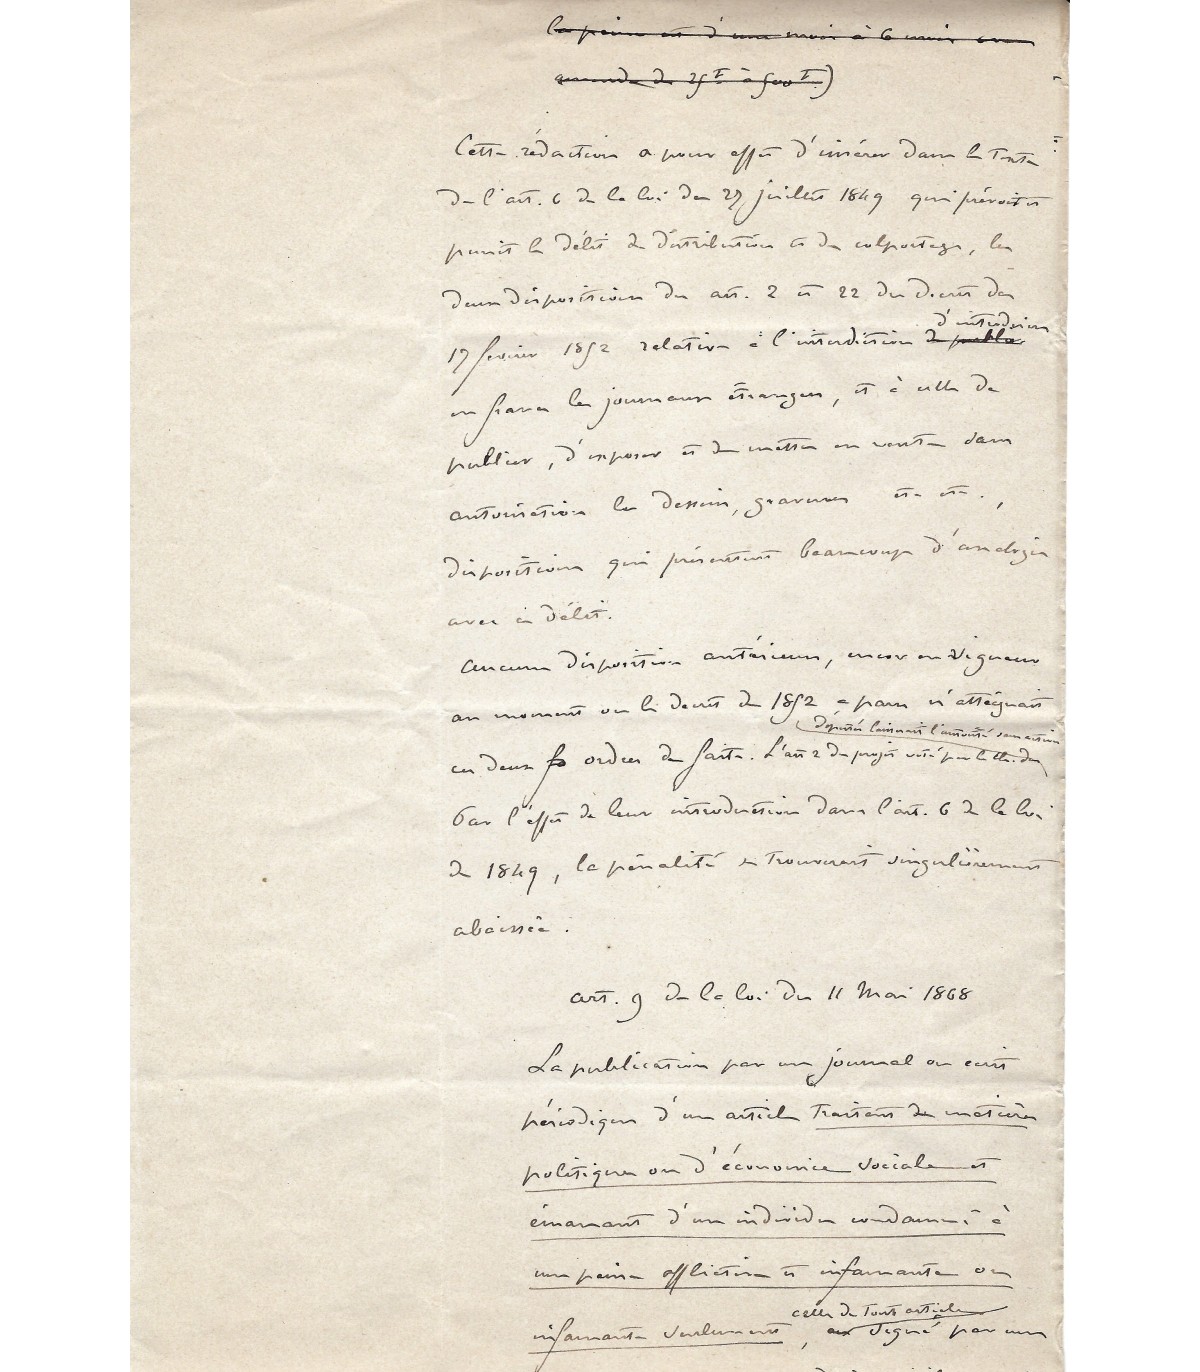 la peine est d'un mois à 6 mois et une
amende de 25f à 500f)
Cette rédaction a pour effet d'insérer dans le texte
de l'art. 6 de la loi du 27 juillet 1849 qui prévoit et
punit le délit de distribution et de colportage, les
deux dispositions des art. 2 et 22 du Décret du
d'introduire
17 fevrier 1852 relative à l'interdiction de publier
en france les journaux étrangers, et à celle de
publier, d'exposer et de mettre en vente sans
autorisation les dessins, gravures etc etc.,
dispositions qui présentent beaucoup d'analogie
avec ce délit.
aucune disposition antérieure, encore en vigueur
au moment ou le decret de 1852 a paru n'atteignait
députés laisserait l'autorité sans action
ces deux ordres de faits. L'art 2 du projet voté par la Ch. des
Par l'effet de leur introduction dans l'art. 6 de la loi
de 1849, la pénalité se trouverait singulièrement
abaissée.
art. 9 de la loi du 11 Mai 1868
La publication par un journal ou écrit
périodique d'un article traitant de matières
politiques ou d'économie sociale et
émanant d'un individu condamné à
une peine afflictive et infamante ou
celle de tout article
infamante seulement, ou signé par une